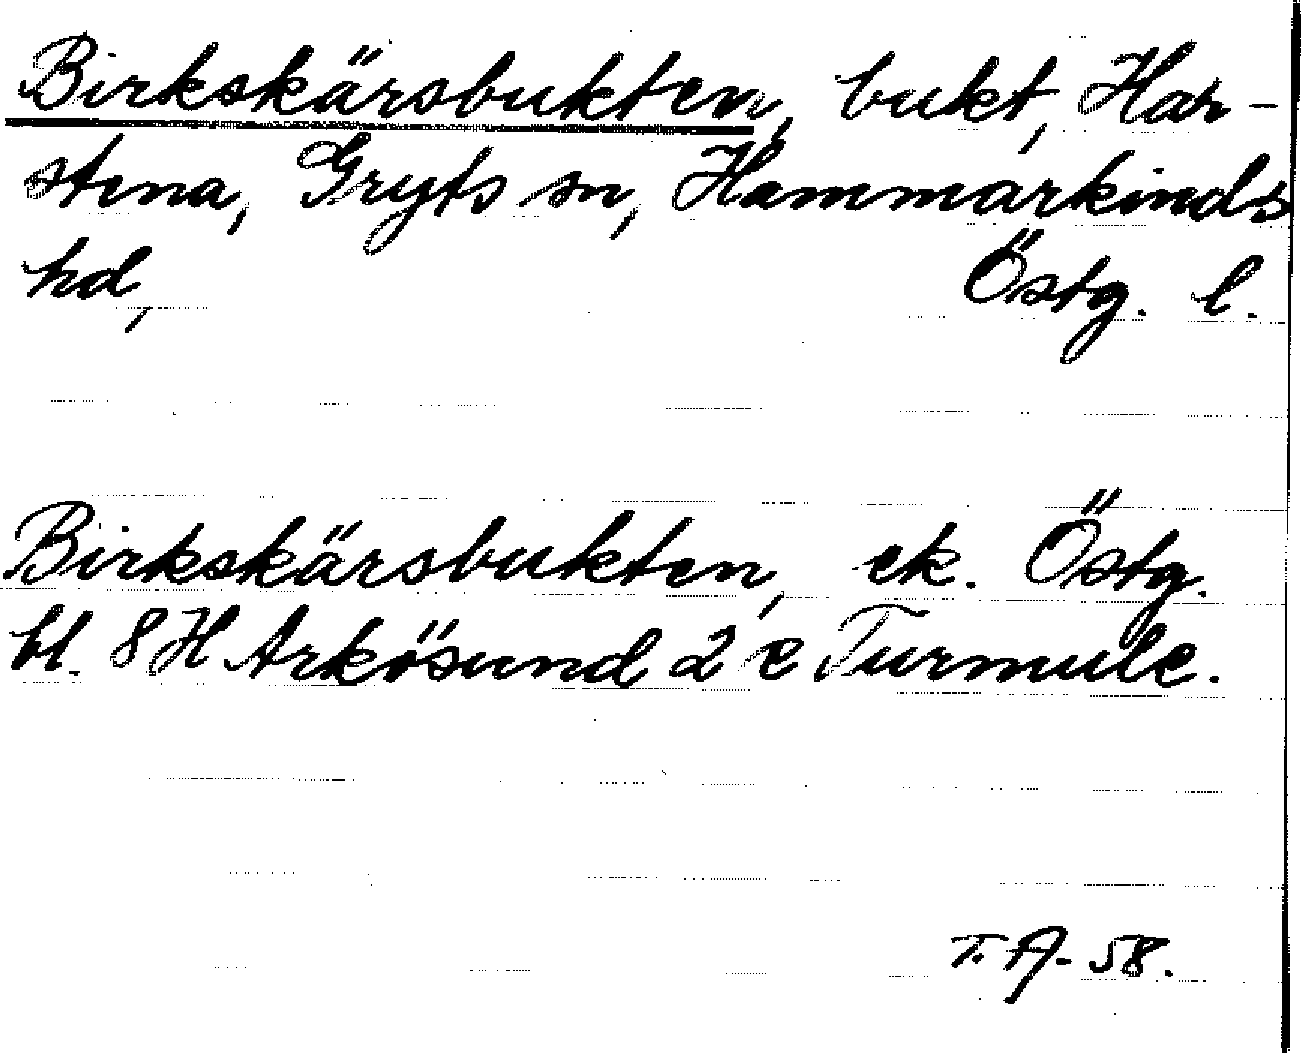 Birkskärsbukten, bukt, Har-
stena, Gryts sn, Hammarkinds
hd, Östg. l.
Birkskärsbukten, ek. Östg.
bl. 8 H Arkösund 2 c Turmule.
T. A- 58.